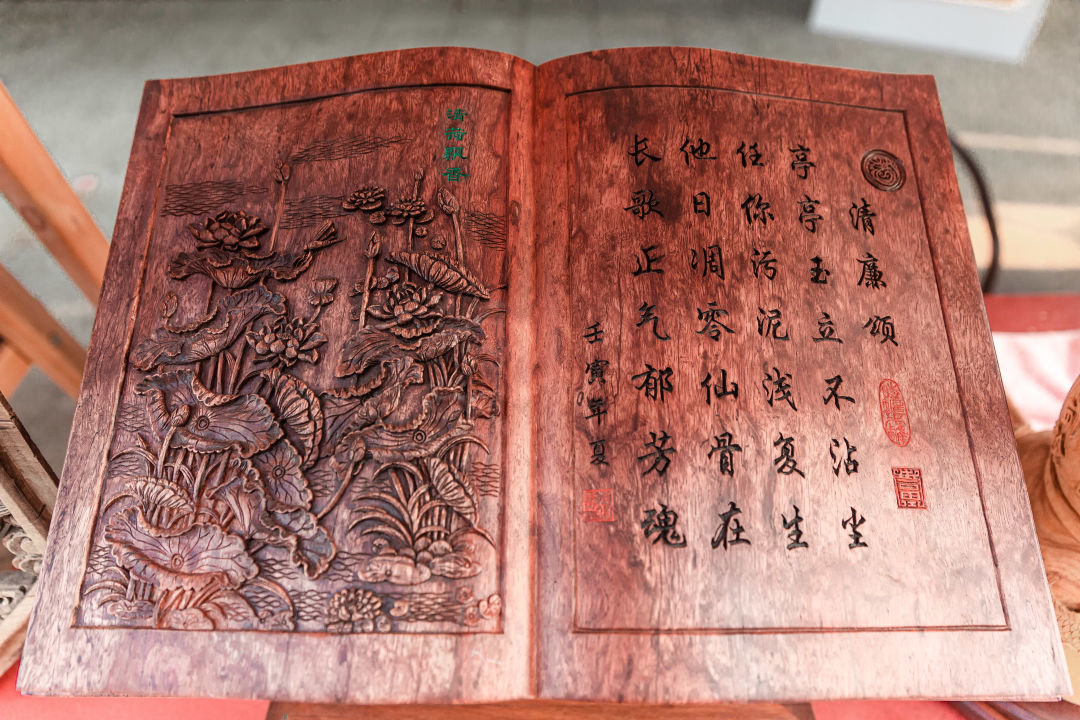 清廉颂
亭亭玉立不沾尘
任你污泥浅复生
他日凋零仙骨在
长歌正气郁芳魂
壬寅年夏
清荷飘香